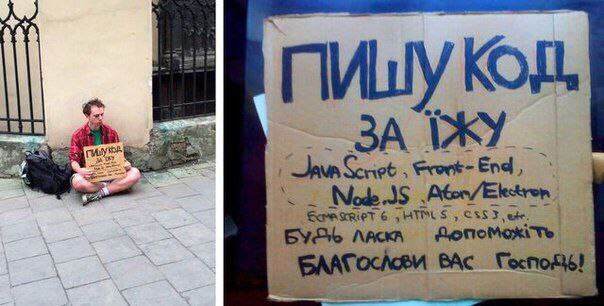 ПИШУ КОД
ЗА ЇЖУ
ПИШУ КОД
ЗА ЇЖУ
JAVAScript, Front-End,
Node.JS, Atom/Electron
ECMASCRIPT 6, HTML 5, CSS3, etc.
БУДЬ ЛАСКА ДОПОМОЖІТЬ
БЛАГОСЛОВИ ВАС ГОСПОДЬ!